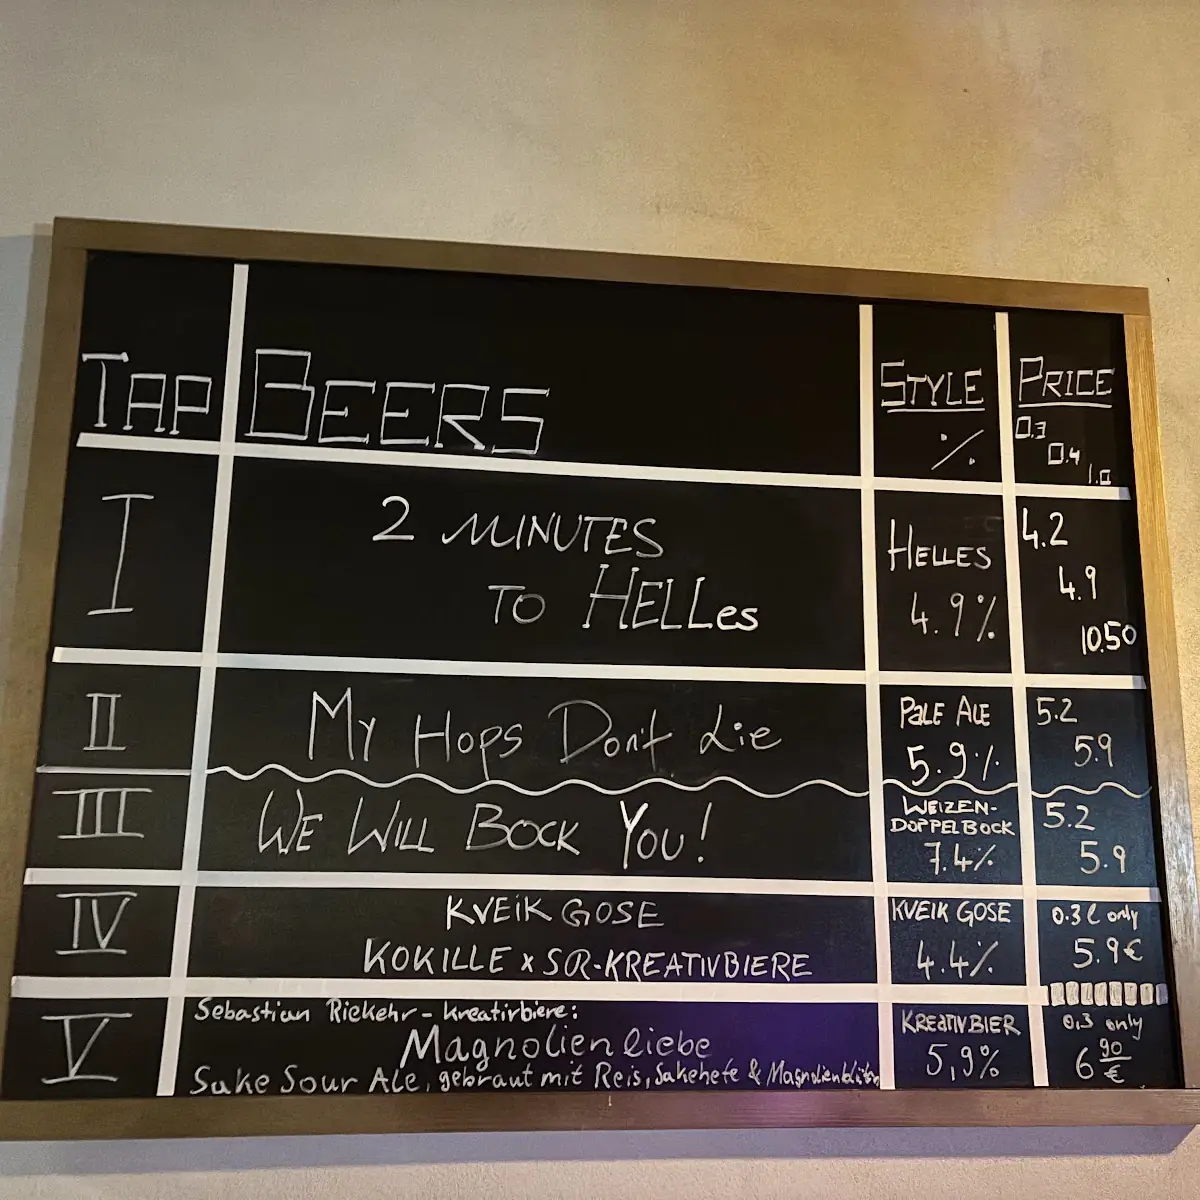 TAP BEERS STYLE PRICE
% 0.3
0.4
1.0
I 2 MINUTES HELLES 4.2
TO HELLes 4.9% 4.9
10.50
II My Hops Don't Lie PALE ALE 5.2
5.9% 5.9
III WE WILL BOCK YOU! WEIZEN- 5.2
DOPPELBOCK
7.4% 5.9
IV KVEIK GOSE KVEIK GOSE 0.3l only
KOKILLE x SR-KREATIVBIERE 4.4% 5.9€
V Sebastian Riekehr - kreativbiere: KREATIVBIER 0,3 only
Magnolienliebe 5,9% 6 90 €
Sake Sour Ale, gebraut mit Reis, Sakehefe & Magnolienblüten